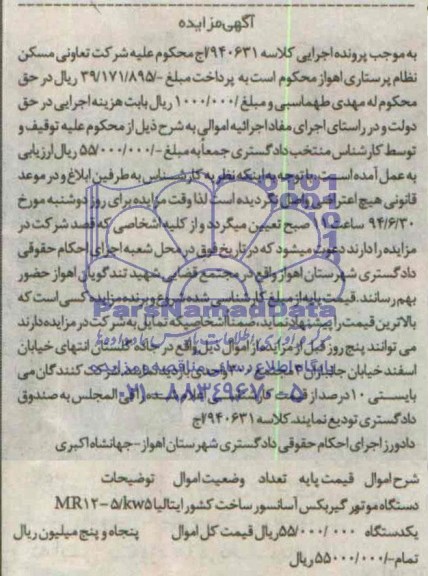 آگهی مزایده
به موجب پرونده اجرایی کلاسه ۹۴۰۶۳۱/اج محکوم علیه شرکت تعاونی مسکن
نظام پرستاری اهواز محکوم است به پرداخت مبلغ -/۳۹/۱۷۱/۸۹۵ ریال در حق
محکوم له مهدی طهماسبی و مبلغ /۱۰۰۰/۰۰۰ ریال بابت هزینه اجرایی در حق
دولت و در راستای اجرای مفاد اجرائیه اموالی به شرح ذیل از محکوم علیه توقیف و
توسط کارشناس منتخب دادگستری جمعاً به مبلغ -/۵۵/۰۰۰/۰۰۰ ریال ارزیابی
به عمل آمده است. با توجه به اینکه نظریه کارشناس به طرفین ابلاغ و در موعد
قانونی هیچ اعتراضی واصل نگردیده است لذا وقت مزایده برای روز دوشنبه مورخ
۹۴/۶/۳۰ ساعت صبح تعیین میگردد و از کلیه اشخاصی که قصد شرکت در
مزایده را دارند دعوت میشود که در تاریخ فوق در محل شعبه اجرای احکام حقوقی
دادگستری شهرستان اهواز واقع در مجتمع قضایی شهید تندگویان اهواز حضور
بهم رسانند. قیمت پایه از مبلغ کارشناسی شده شروع و برنده مزایده کسی است که
بالاترین قیمت را پیشنهاد نماید، ضمناً اشخاصیکه تمایل به شرکت در مزایده دارند
می توانند پنج روز قبل از مزایده از اموال ذیل واقع در جاده گلستان انتهای خیابان
اسفند خیابان جانبازان بازدید شرکت کنندگان می
بایستی ۱۰ درصد از قیمت کارشناسی اعلام شده را فی المجلس به صندوق
دادگستری تودیع نمایند. کلاسه ۹۴۰۶۳۱/اج
دادورز اجرای احکام حقوقی دادگستری شهرستان اهواز - جهانشاه اکبری
شرح اموال قیمت پایه تعداد وضعیت اموال توضیحات
دستگاه موتور گیربکس آسانسور ساخت کشور ایتالیا MR۱۲-۵/kw۵
یکدستگاه ۵۵/۰۰۰/۰۰۰ ریال قیمت کل اموال پنجاه و پنج میلیون ریال
تمام -/۵۵۰۰۰/۰۰۰ ریال
ParsNamadData
پایگاه اطلاع رسانی مناقصه و مزایده
۰۲۱-۸۸۳۴۹۶۷۰-۵